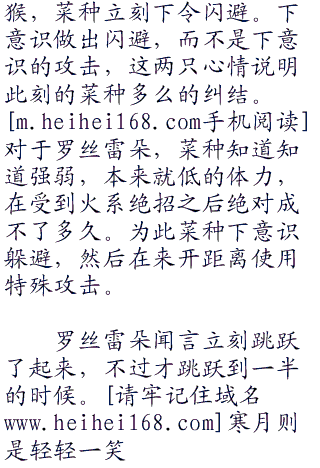 猴，菜种立刻下令闪避。下
意识做出闪避，而不是下意
识的攻击，这两只心情说明
此刻的菜种多么的纠结。
[m.heihei168.com手机阅读]
对于罗丝雷朵，菜种知道知
道强弱，本来就低的体力，
在受到火系绝招之后绝对成
不了多久。为此菜种下意识
躲避，然后在来开距离使用
特殊攻击。
罗丝雷朵闻言立刻跳跃
了起来，不过才跳跃到一半
的时候。[请牢记住域名
www.heihei168.com]寒月则
是轻轻一笑